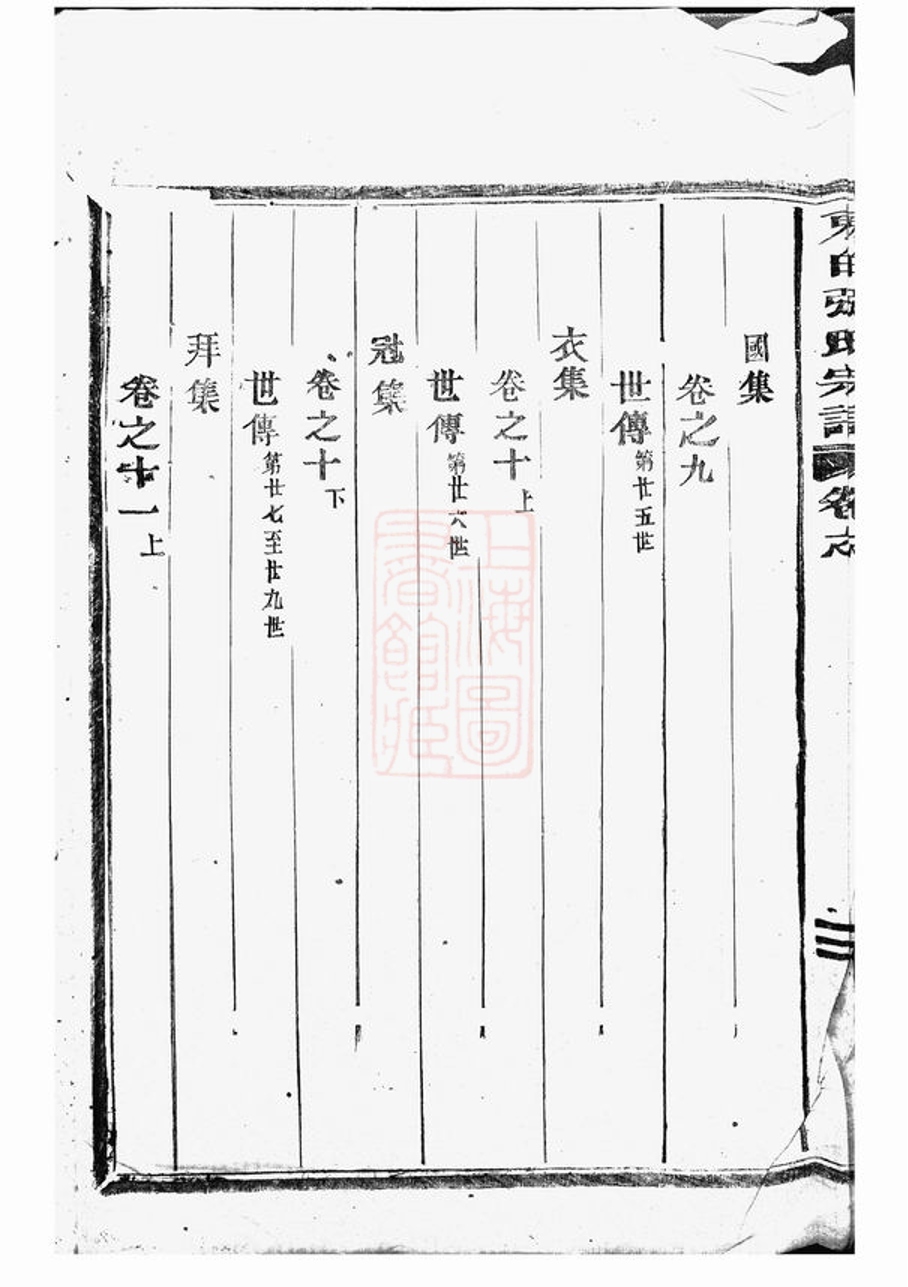 張氏宗譜 卷志
國集
卷之九
世傳 第廿五世
衣集
卷之十 上
世傳 第廿六世
冠集
卷之十 下
世傳 第廿七至廿九世
拜集
卷之十一 上
上海圖書館藏